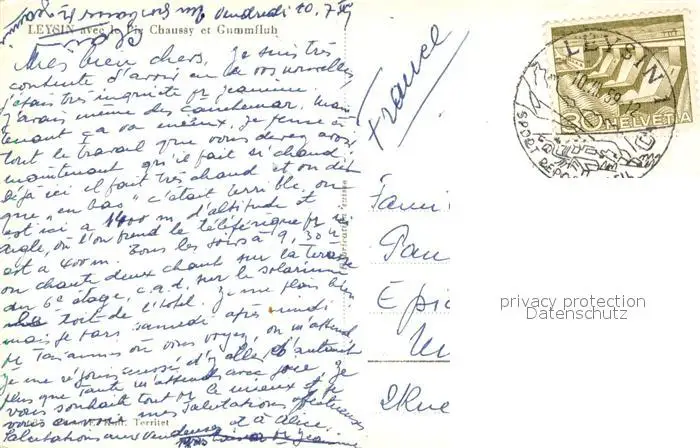 Vendredi 10.7.59
LEYSIN avec le Pic Chaussy et Gummfluh
Mes bien chers, Je suis très
contente d'avoir eu de vos nouvelles,
j'étais très inquiète pr Jeannine
j'avais même des cauchemar. Main
tenant ça va mieux. Je pense à
tout le travail que vous devez avoir
maintenant qu'il fait si chaud
déjà ici il fait très chaud et on dit
que "en bas" c'était terrible, on
est ici à 1400 m d'altitude et
Aigle, où l'on prend le téléférique pr
est à 400 m. Tous les soirs à 9,30 h
on chante deux chant sur la terrasse
du 6e étage, c.a.d. sur le solarium
toit de l'hôtel. Je me plais bien
mais je pars samedi après midi
où vous voyez, on m'attend
je me réjouis aussi d'y aller d'autant
plus que Tante m'attend avec joie. Je
vous souhaite tout le mieux et je
vous envoie mes salutations affectueuses
Salutations aux vendeuses et à Alice.
Territet
France
Fami
Pau
Epi
2 Rue
LEYSIN 1
10.VII.59.12
SPORT REPOS
30 HELVETIA
privacy protection
Datenschutz